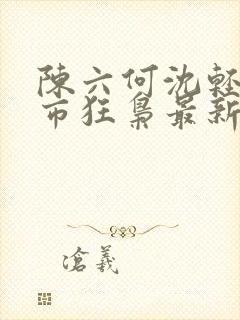 陳六何沈輕
市狂梟最新
滄義